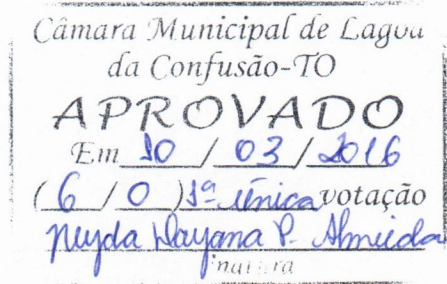 Câmara Municipal de Lagoa
da Confusão-TO
APROVADO
Em 10 / 03 / 2016
( 6 / 0 ) 1ª única votação
Neyda Dayana P. Almeida